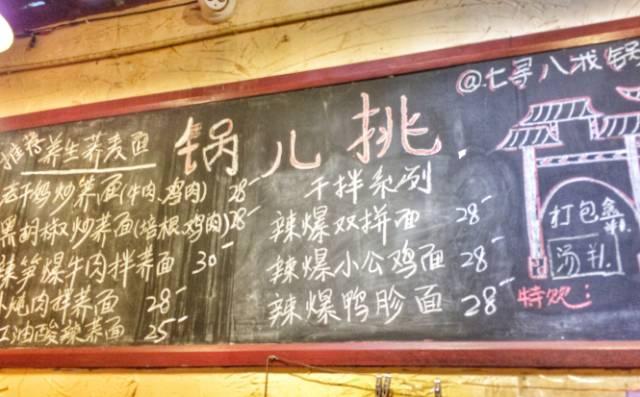 @七哥八找锅
锅儿挑
推荐养生荞麦面
老干妈炒荞面(牛肉.鸡肉) 28-
黑胡椒炒荞面(培根.鸡肉) 28-
辣笋爆牛肉拌荞面 30-
炖肉拌荞面 28-
红油酸辣荞面 25-
干拌系列
辣爆双拼面 28-
辣爆小公鸡面 28-
辣爆鸭胗面 28-
打包盒
特欢: